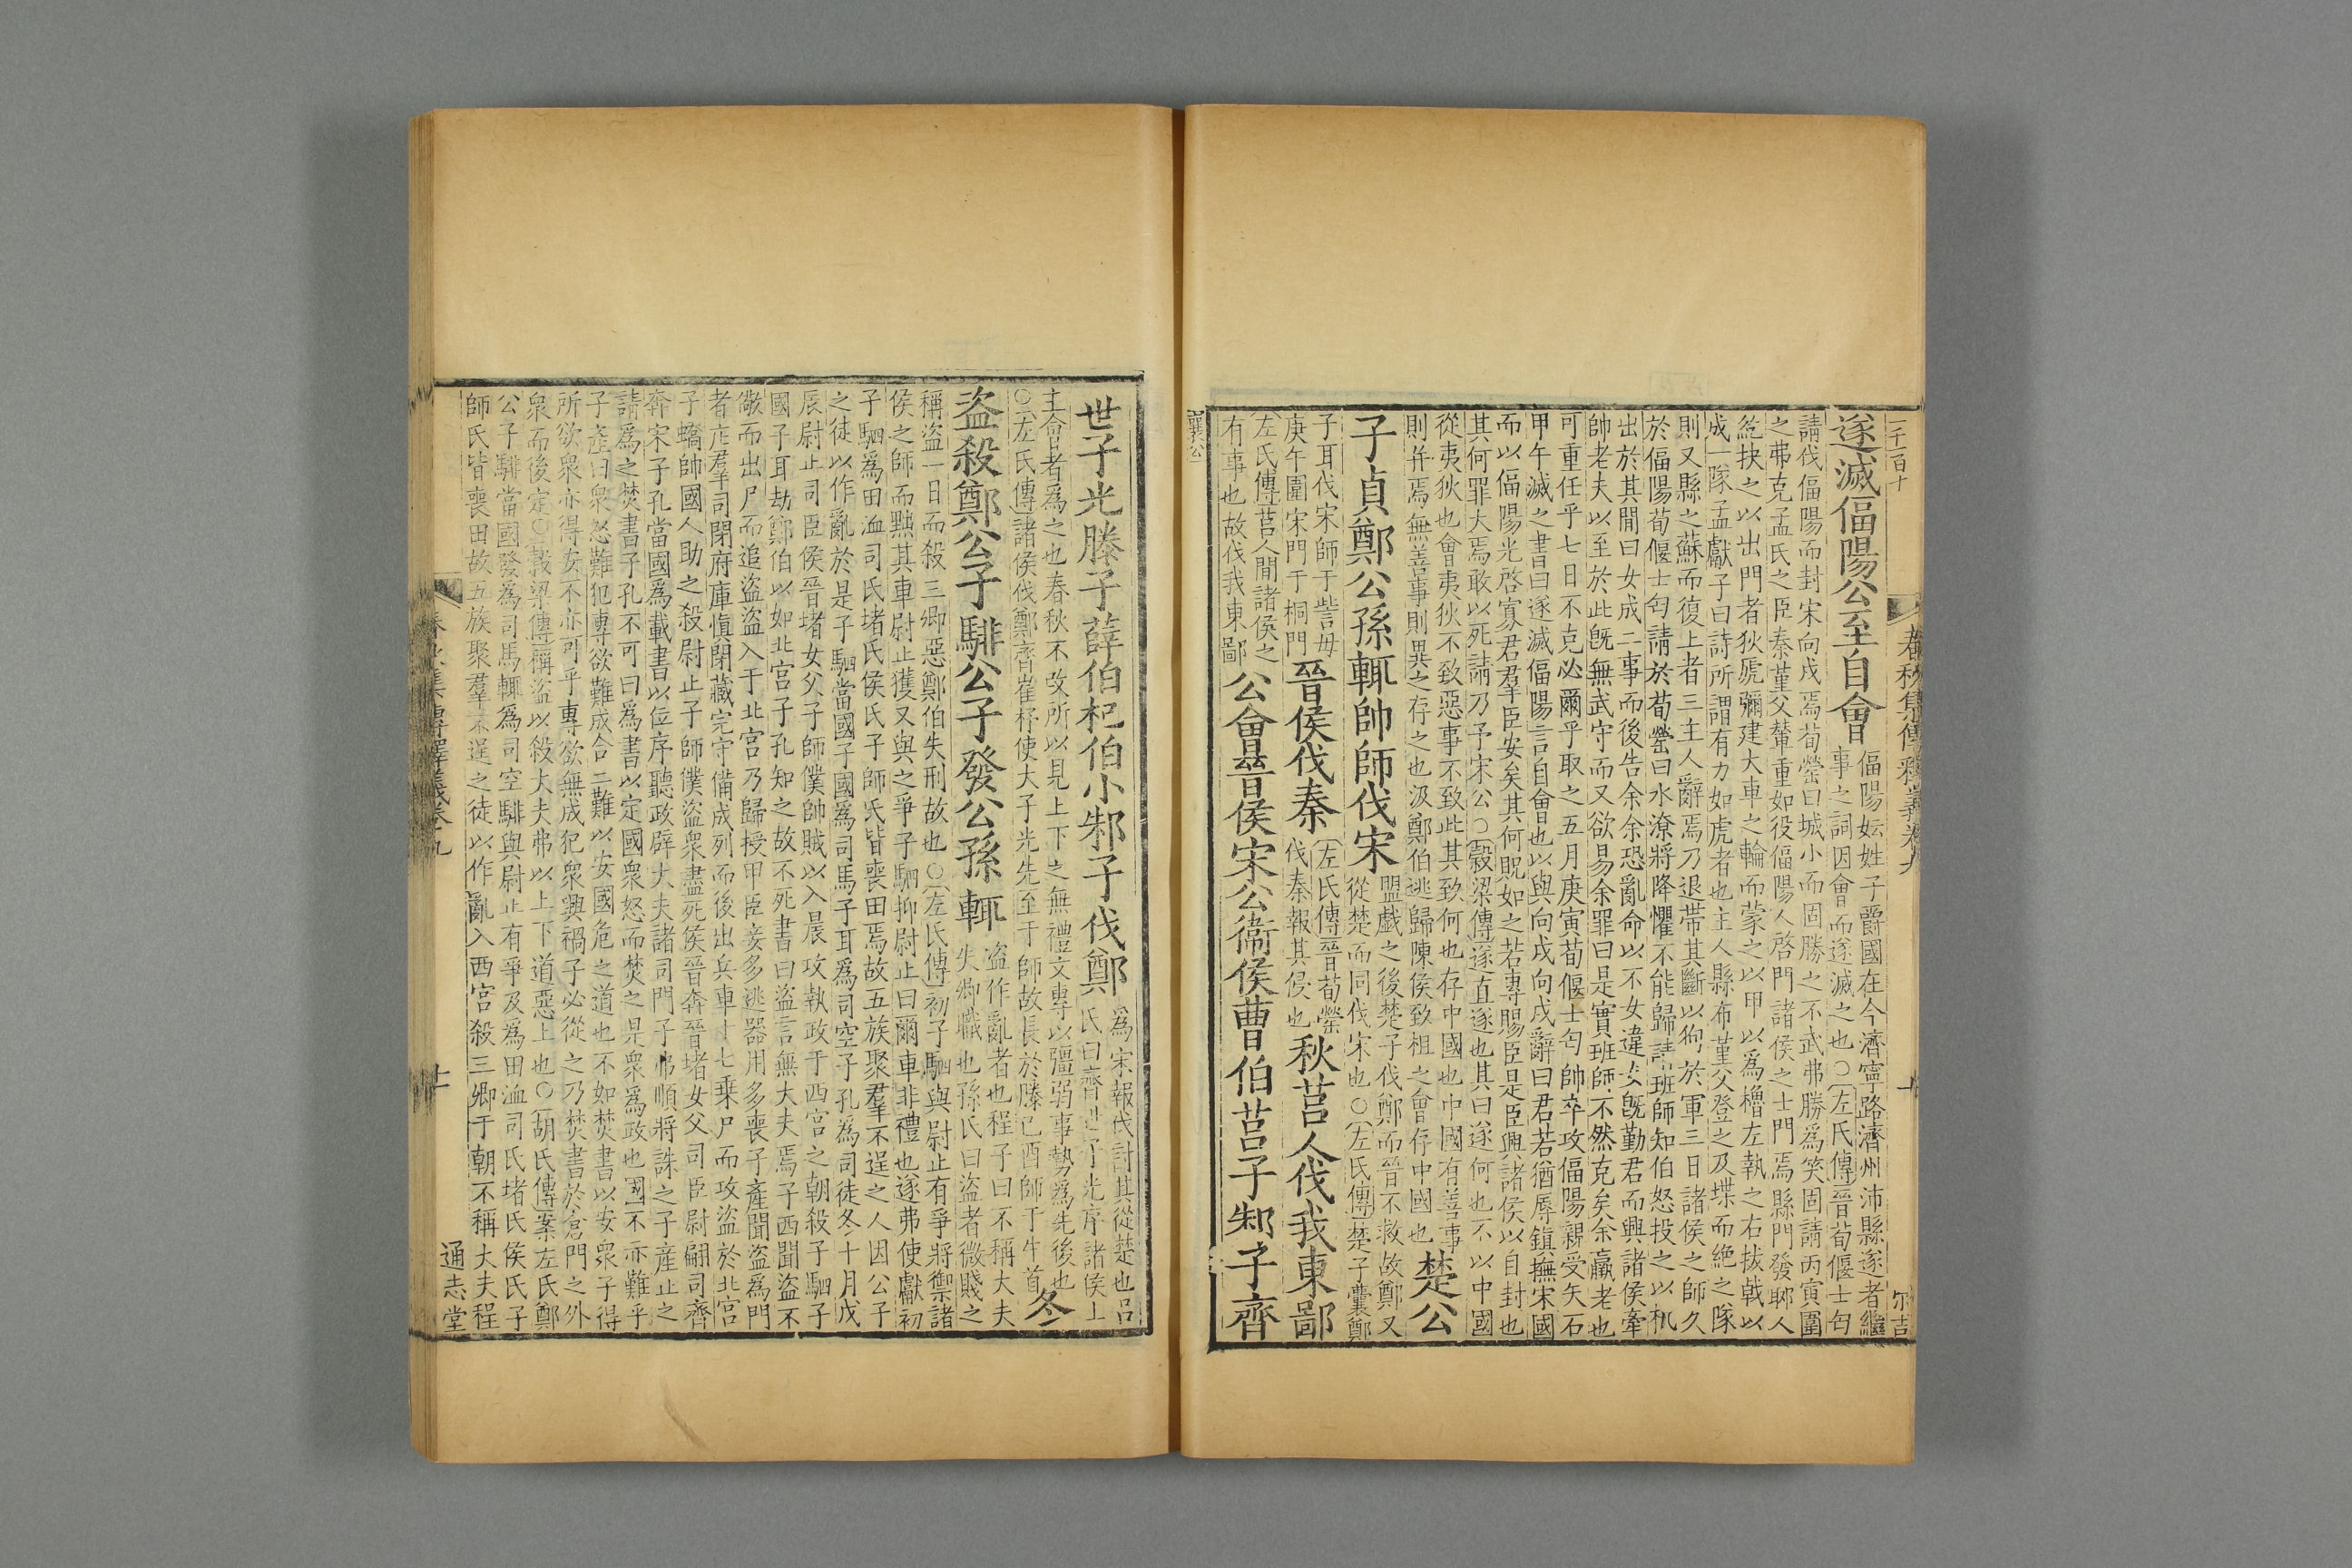 遂滅偪陽公至自會
偪陽妘姓子爵國在今濟寧路濟州沛縣遂者繼
事之詞因會而遂滅之也○左氏傳晉荀偃士匄
請伐偪陽而封宋向戌焉荀罃曰城小而固勝之不武弗勝為笑固請丙寅圍
之弗克孟氏之臣秦堇父輦重如役偪陽人啓門諸侯之士門焉縣門發郰人
紇抉之以出門者狄虒彌建大車之輪而蒙之以甲以為櫓左執之右拔戟以
成一隊孟獻子曰詩所謂有力如虎者也主人縣布堇父登之及堞而絕之隊
則又縣之蘇而復上者三主人辭焉乃退帶其斷以徇於軍三日諸侯之師久
於偪陽荀偃士匄請於荀罃曰水潦將降懼不能歸請班師知伯怒投之以机
出於其閒曰女成二事而後告余余恐亂命以不女違女旣勤君而興諸侯牽
帥老夫以至於此旣無武守而又欲易余罪曰是實班師不然克矣余羸老也
可重任乎七日不克必爾乎取之五月庚寅荀偃士匄帥卒攻偪陽親受矢石
甲午滅之書曰遂滅偪陽言自會也以與向戌向戌辭曰君若猶辱鎮撫宋國
而以偪陽光啓寡君羣臣安矣其何貺如之若專賜臣是臣興諸侯以自封也
其何罪大焉敢以死請乃予宋公○穀梁傳遂直遂也其曰遂何也不以中國
從夷狄也會夷狄不致惡事不致此其致何也存中國也中國有善事
則幷焉無善事則異之存之也汲鄭伯逃歸陳侯致柤之會存中國也
楚公
子貞鄭公孫輒帥師伐宋
盟戲之後楚子伐鄭而晉不救故鄭又
從楚而同伐宋也○左氏傳楚子囊鄭
子耳伐宋師于訾毋
庚午圍宋門于桐門
晉侯伐秦
左氏傳晉荀罃
伐秦報其侵也
秋莒人伐我東鄙
左氏傳莒人閒諸侯之
有事也故伐我東鄙
公會晉侯宋公衞侯曹伯莒子邾子齊
襄公
世子光滕子薛伯杞伯小邾子伐鄭
為宋報伐討其從楚也呂
氏曰齊世子光序諸侯上
主會者為之也春秋不改所以見上下之無禮文專以彊弱事勢為先後也
○左氏傳諸侯伐鄭齊崔杼使大子光先至于師故長於滕己酉師于牛首
冬
盜殺鄭公子騑公子發公孫輒
盜作亂者也程子曰不稱大夫
失卿職也孫氏曰盜者微賤之
稱盜一日而殺三卿惡鄭伯失刑故也○左氏傳初子駟與尉止有爭將禦諸
侯之師而黜其車尉止獲又與之爭子駟抑尉止曰爾車非禮也遂弗使獻初
子駟為田洫司氏堵氏侯氏子師氏皆喪田焉故五族聚羣不逞之人因公子
之徒以作亂於是子駟當國子國為司馬子耳為司空子孔為司徒冬十月戊
辰尉止司臣侯晉堵女父子師僕帥賊以入晨攻執政于西宮之朝殺子駟子
國子耳劫鄭伯以如北宮子孔知之故不死書曰盜言無大夫焉子西聞盜不
儆而出尸而追盜盜入于北宮乃歸授甲臣妾多逃器用多喪子產聞盜為門
者庀羣司閉府庫愼閉藏完守備成列而後出兵車十七乘尸而攻盜於北宮
子蟜帥國人助之殺尉止子師僕盜衆盡死侯晉奔晉堵女父司臣尉翩司齊
奔宋子孔當國為載書以位序聽政辟大夫諸司門子弗順將誅之子產止之
請為之焚書子孔不可曰為書以定國衆怒而焚之是衆為政也國不亦難乎
子產曰衆怒難犯專欲難成合二難以安國危之道也不如焚書以安衆子得
所欲衆亦得安不亦可乎專欲無成犯衆興禍子必從之乃焚書於倉門之外
衆而後定○穀梁傳稱盜以殺大夫弗以上下道惡上也○胡氏傳案左氏鄭
公子騑當國發為司馬輒為司空騑與尉止有爭及為田洫司氏堵氏侯氏子
師氏皆喪田故五族聚羣不逞之徒以作亂入西宮殺三卿于朝不稱大夫程
春秋集傳釋義卷九
十一
通志堂